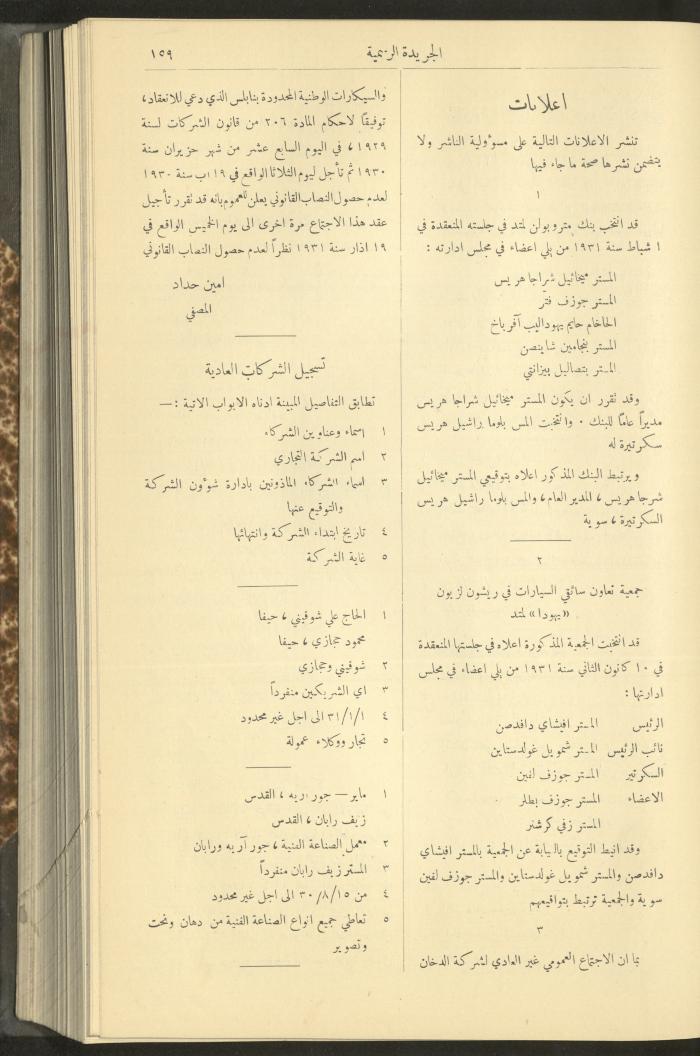 الجريدة الرسمية
١٥٩
اعلانات
تنشر الاعلانات التالية على مسؤولية الناشر ولا
يتضمن نشرها صحة ما جاء فيها
١
قد انتخب بنك متروبولن لمتد في جلسته المنعقدة في
١ شباط سنة ١٩٣١ من يلي اعضاء في مجلس ادارته :
المستر ميخائيل شراجا هريس
المستر جوزف فتر
الحاخام حايم يهوداليب آفرباخ
المستر بنجامين شاينصن
المستر بتصاليل بيزانتي
وقد تقرر ان يكون المستر ميخائيل شراجا هريس
مديراً عاماً للبنك . وانتخبت المس بلوما راشيل هريس
سكرتيرة له
ويرتبط البنك المذكور اعلاه بتوقيعي المستر ميخائيل
شرجا هريس ، المدير العام ، والمس بلوما راشيل هريس
السكرتيرة ، سوية
٢
جمعية تعاون سائقي السيارات في ريشون لزيون
«يهودا» لمتد
قد انتخبت الجمعية المذكورة اعلاه في جلستها المنعقدة
في ١٠ كانون الثاني سنة ١٩٣١ من يلي اعضاء في مجلس
ادارتها :
الرئيس المستر افيشاي دافدصن
نائب الرئيس المستر شمويل غولدستاين
السكرتير المستر جوزف لفين
الاعضاء المستر جوزف بطلر
المستر زفي كرشنر
وقد انيط التوقيع بالنيابة عن الجمعية بالمستر افيشاي
دافدصن والمستر شمويل غولدستاين والمستر جوزف لفين
سوية والجمعية ترتبط بتواقيعهم
٣
بما ان الاجتماع العمومي غير العادي لشركة الدخان
والسيكارات الوطنية المحدودة بنابلس الذي دعي للانعقاد ،
توفيقاً لاحكام المادة ٢٠٦ من قانون الشركات لسنة
١٩٢٩ ، في اليوم السابع عشر من شهر حزيران سنة
١٩٣٠ ثم تأجل ليوم الثلاثا الواقع في ١٩ اب سنة ١٩٣٠
لعدم حصول النصاب القانوني يعلن للعموم بانه قد تقرر تأجيل
عقد هذا الاجتماع مرة اخرى الى يوم الخميس الواقع في
١٩ اذار سنة ١٩٣١ نظراً لعدم حصول النصاب القانوني
امين حداد
المصفي
تسجيل الشركات العادية
تطابق التفاصيل المبينة ادناه الابواب الاتية : —
١ اسماء وعناوين الشركاء
٢ اسم الشركة التجاري
٣ اسماء الشركاء الماذونين بادارة شؤون الشركة
والتوقيع عنها
٤ تاريخ ابتداء الشركة وانتهائها
٥ غاية الشركة
١ الحاج علي شوقيني ، حيفا
محمود حجازي ، حيفا
٢ شوقيني وحجازي
٣ اي الشريكين منفرداً
٤ ٣١/١/١ الى اجل غير محدود
٥ تجار ووكلاء عمولة
١ ماير — جور اريه ، القدس
زيف رابان ، القدس
٢ معمل الصناعة الفنية ، جور آريه ورابان
٣ المستر زيف رابان منفرداً
٤ من ٣٠/٨/١٥ الى اجل غير محدود
٥ تعاطي جميع انواع الصناعة الفنية من دهان ونحت
وتصوير